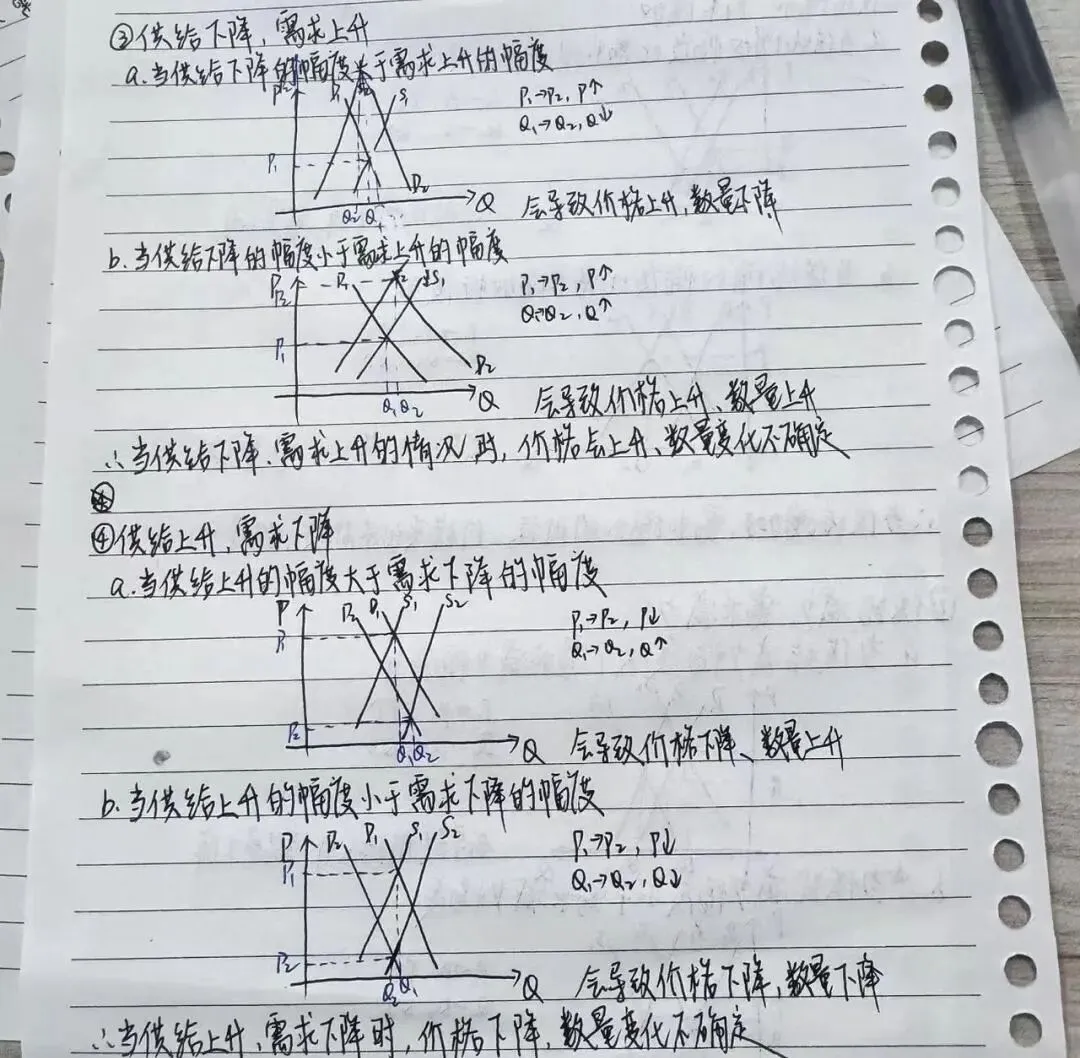 ③供给下降，需求上升
a.当供给下降的幅度大于需求上升的幅度
P₂ D₁ S₁
P₁→P₂，P↑
Q₁→Q₂，Q↓
P₁
D₂
Q₂ Q₁ Q
会导致价格上升，数量下降
b.当供给下降的幅度小于需求上升的幅度
P D₁ S₂ S₁
P₂
P₁→P₂，P↑
Q→Q₂，Q↑
P₁
D₂
Q₁ Q₂ Q
会导致价格上升、数量上升
∴当供给下降、需求上升的情况时，价格会上升、数量变化不确定
④供给上升，需求下降
a.当供给上升的幅度大于需求下降的幅度
P D₂ D₁ S₁ S₂
P₁→P₂，P↓
P₁
Q₁→Q₂，Q↑
P₂
Q₁ Q₂ Q
会导致价格下降、数量上升
b.当供给上升的幅度小于需求下降的幅度
P D₂ D₁ S₁ S₂
P₁→P₂，P↓
P₁
Q₁→Q₂，Q↓
P₂
Q₂ Q₁ Q
会导致价格下降，数量下降
∴当供给上升，需求下降时，价格下降，数量变化不确定